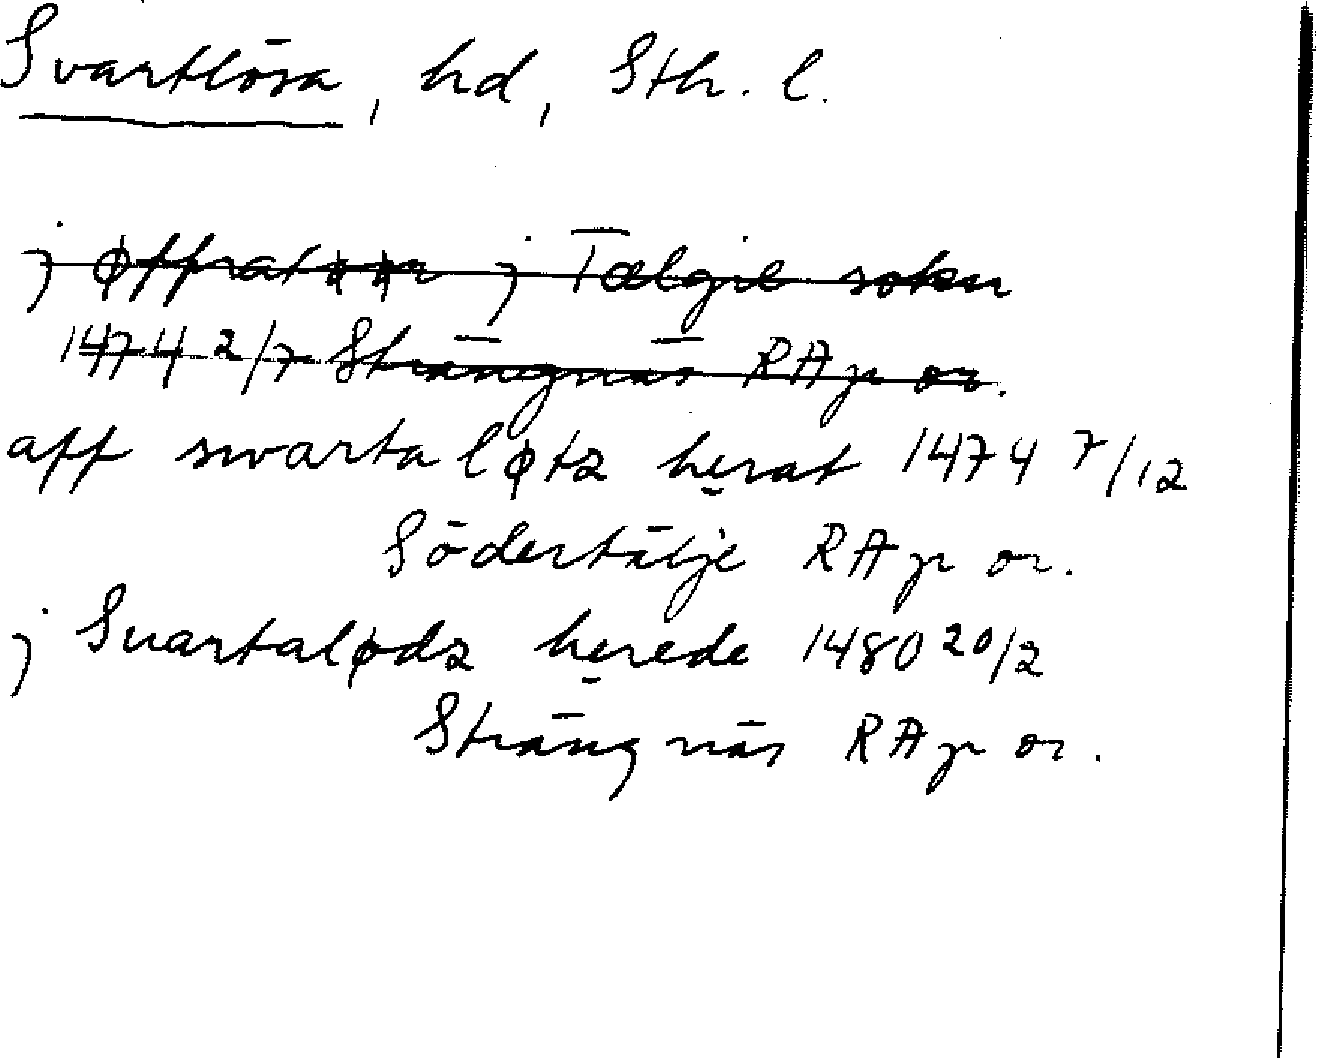 Svartlösa, hd, Sth. l.
j Tælgie sokn
1474 2/7 Strängnäs RAp or.
aff swarta løtz herat 1474 7/12
Södertälje RAp or.
j Suartalødz herede 1480 20/2
Strängnäs RAp or.